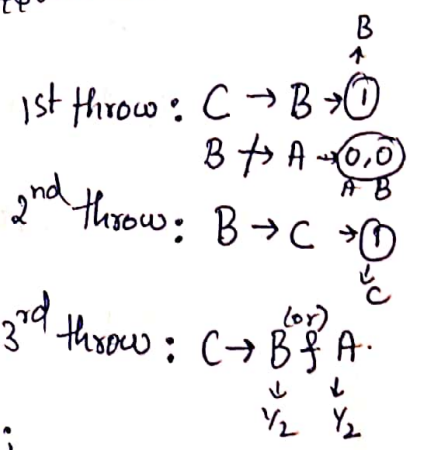 B
↑
1st throw : C → B → 1
B ↛ A → 0,0
A B
2nd throw : B → C → 1
↓
C
(or)
3rd throw : C → B & A.
↓ ↓
1/2 1/2
;